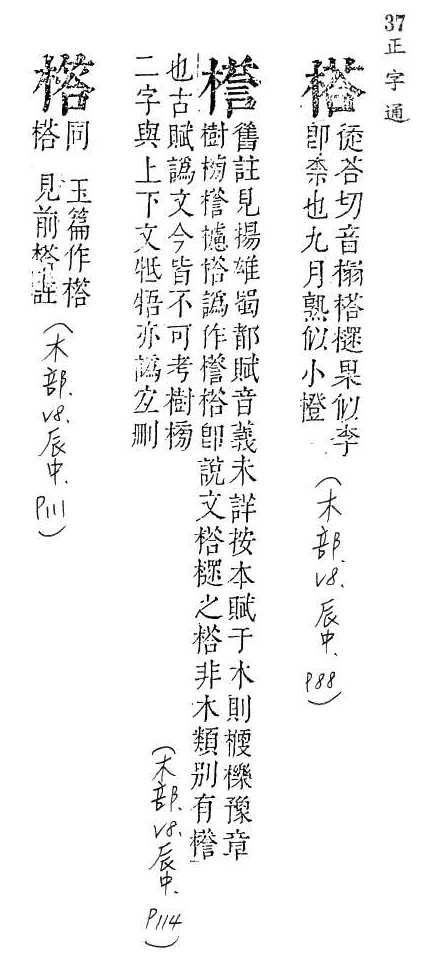 37正字通
榙
從荅切音榻榙㯚果似李
即柰也九月熟似小橙
(木部.V8.辰中.P88)
舊註見揚雄蜀都賦音義未詳按本賦于木則楩櫟豫章
樹榜櫨榙譌作榙即說文榙㯚之榙非木類別有
也古賦譌文今皆不可考樹榜
二字與上下文牴牾亦譌宜刪
(木部.V8.辰中.P114)
同 玉篇作榙
榙 見前榙註
(木部.V8.辰中.P111)